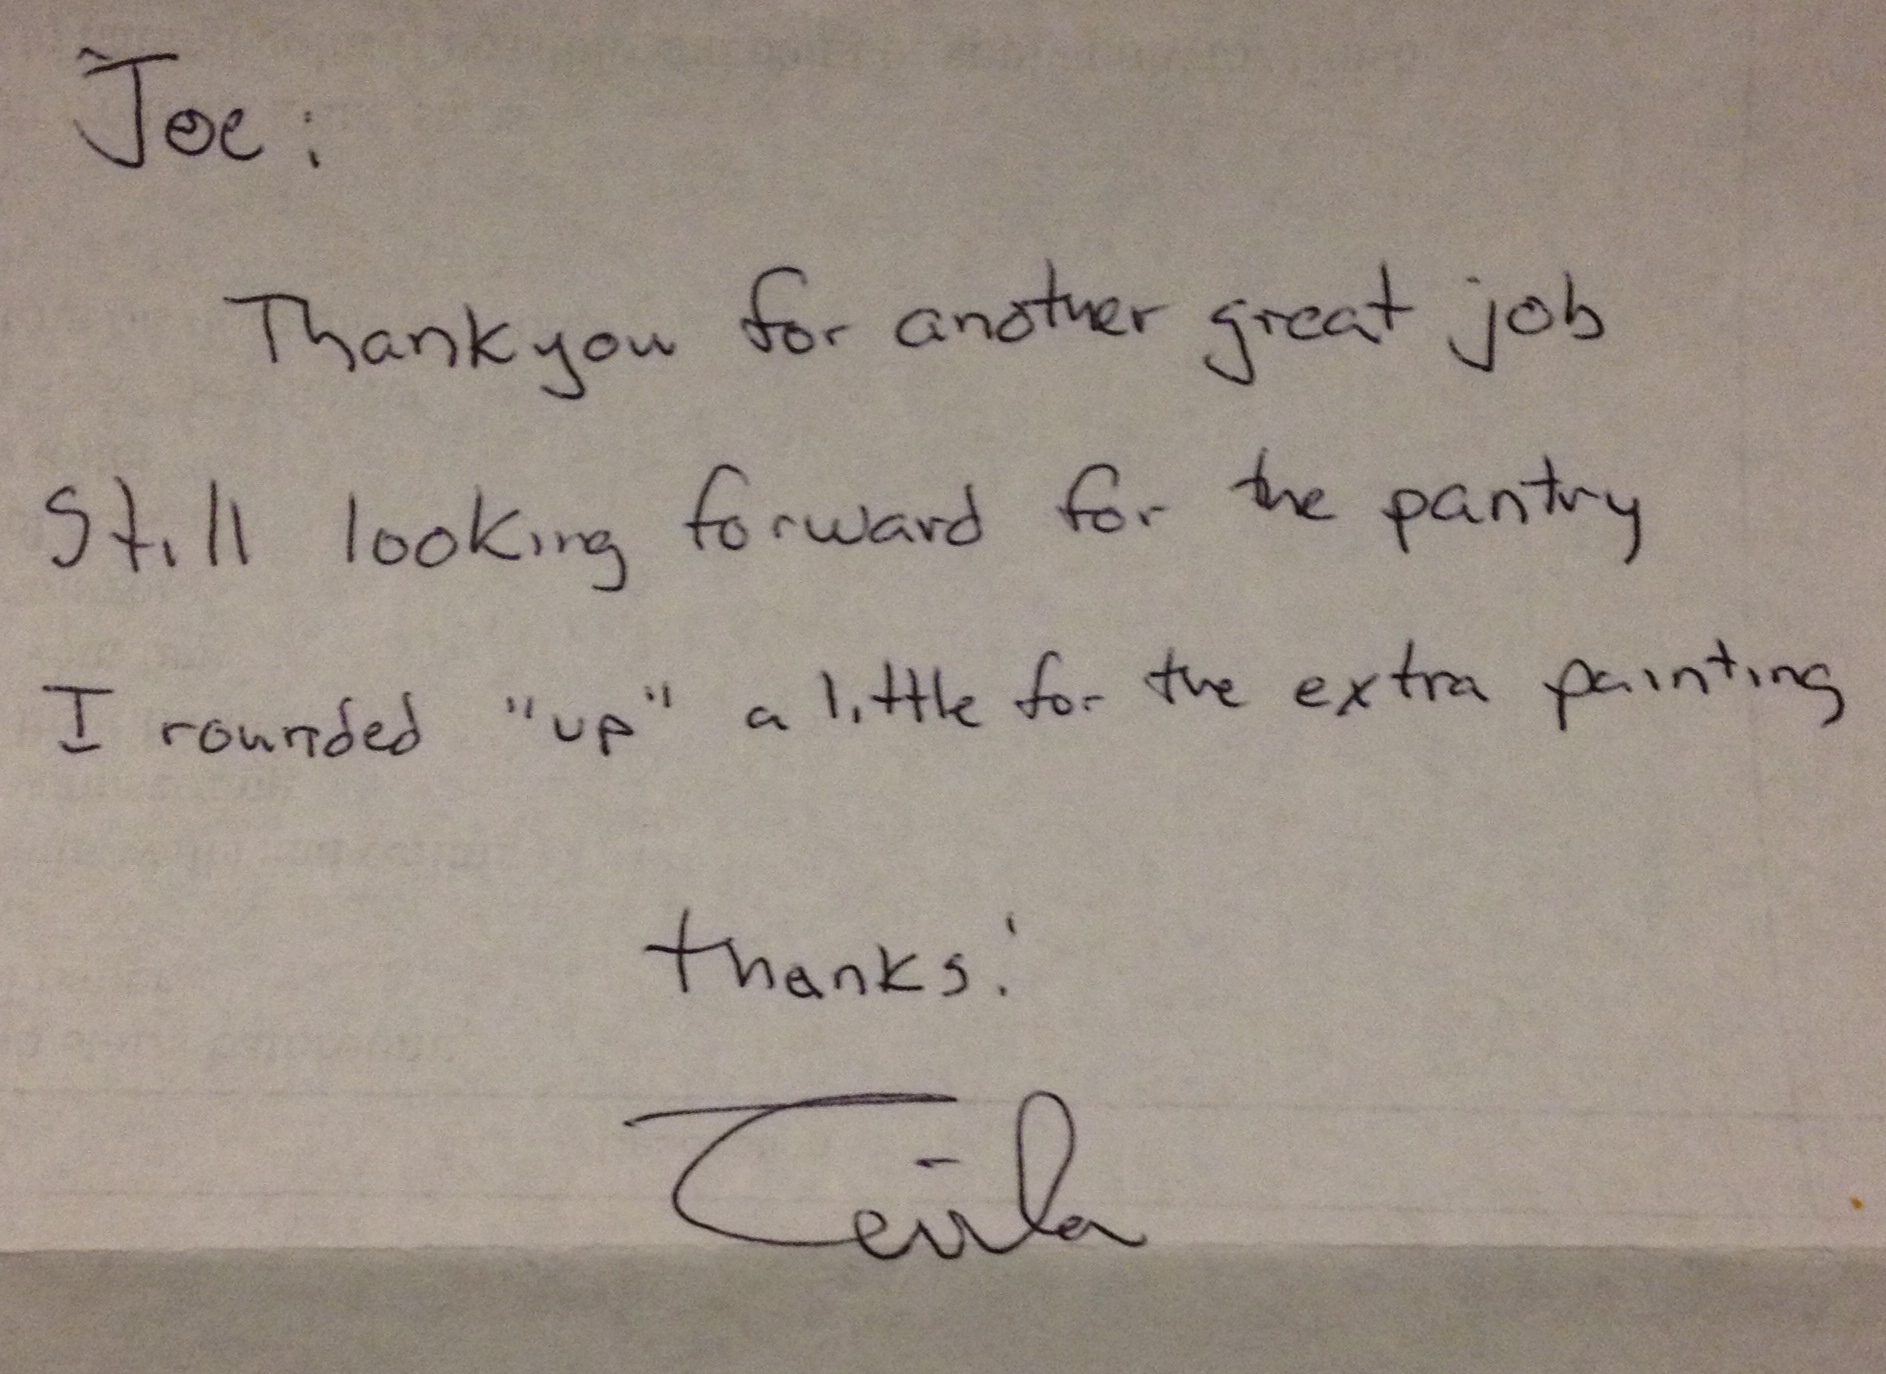 Joe:
Thank you for another great job
Still looking forward for the pantry
I rounded "up" a little for the extra painting
thanks!